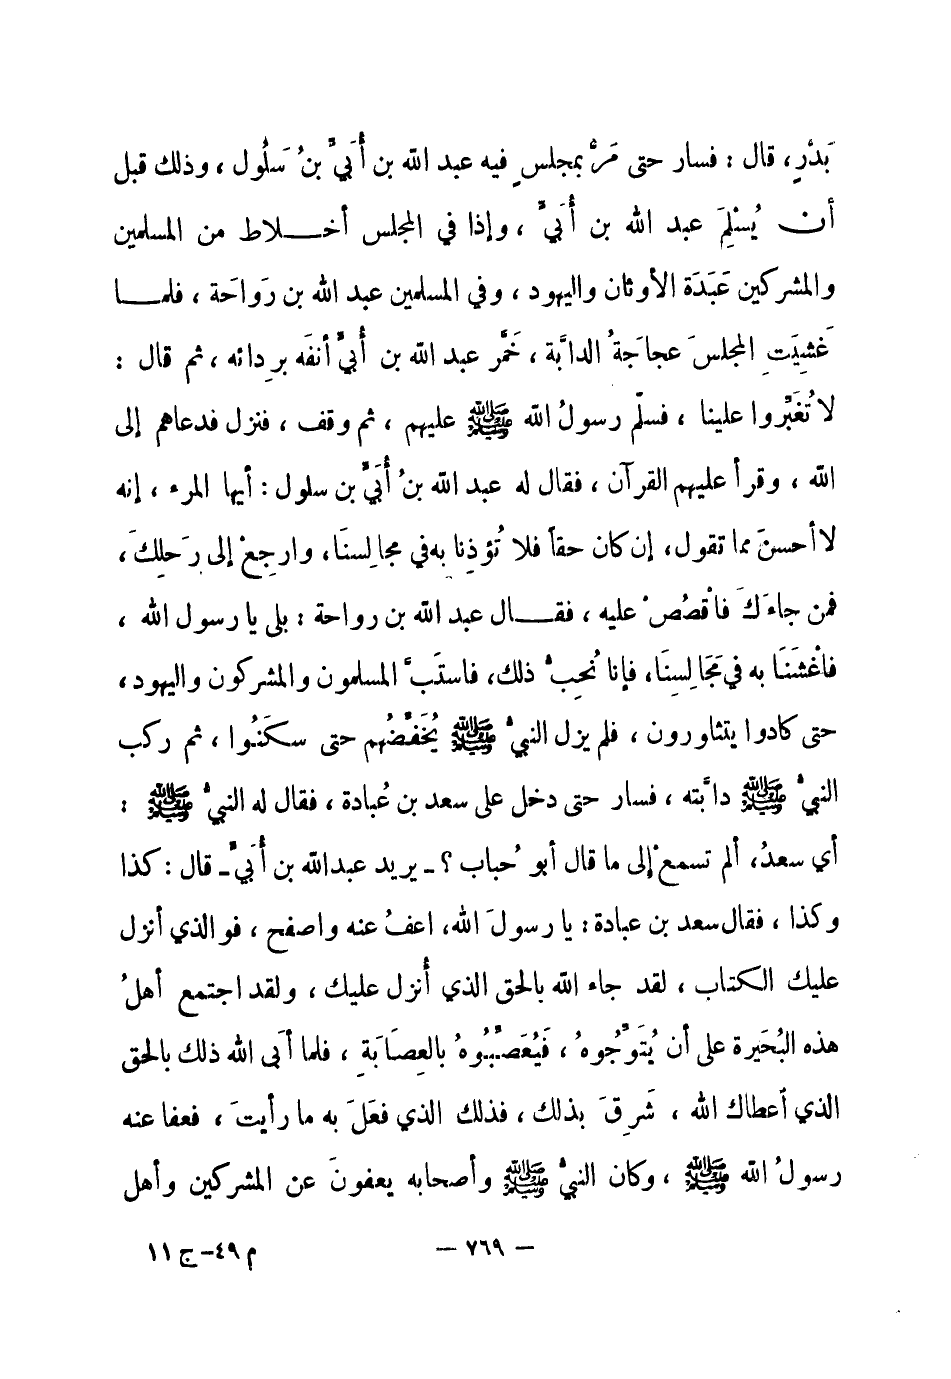 بَدْرٍ، قال : فسار حتى مَرَّ بمجلسٍ فيه عبد الله بن أُبَيِّ بنُ سَلُول ، وذلك قبل
أن يُسْلِمَ عبد الله بن أُبَيٍّ ، وإذا في المجلس أخـلاط من المسلمين
والمشركين عَبَدَة الأوثان واليهود ، وفي المسلمين عبد الله بن رَوَاحَة ، فلمـا
غَشِيَتِ المجلسَ عجاجَةُ الدابَّة ، خَمَّر عبد الله بن أُبيٍّ أنفَه بردِائه ، ثم قال :
لا تُغَبِّروا علينا ، فسلّم رسولُ الله ﷺ عليهم ، ثم وقف ، فنزل فدعاهم إلى
الله ، وقرأ عليهم القرآن ، فقال له عبد الله بنُ أُبَيِّ بن سلول : أيها المرء ، إنه
لا أحسنَ مما تقول، إن كان حقاً فلا تُؤذِنا به في مجالِسنَا، وارجِعْ إلى رَحلِكَ،
فمن جاءَكَ فاقْصُصْ عليه ، فقـال عبد الله بن رواحة : بلى يا رسول الله ،
فاغْشَنَا به في مَجَالِسِنَا، فإنا نُحِبُّ ذلك، فاستَبَّ المسلمون والمشركون واليهود،
حتى كادوا يتثاورون ، فلم يزل النبيُّ ﷺ يُخَفِّضُهم حتى سكَنُوا ، ثم ركب
النبيُّ ﷺ دابَّته ، فسار حتى دخل على سعد بن عُبادة ، فقال له النبيُّ ﷺ :
أي سعدُ، ألم تسمعْ إلى ما قال أبو حُباب ؟ ـ يريد عبدالله بن أُبَيٍّ ـ قال : كذا
وكذا ، فقال سعد بن عبادة : يا رسولَ الله، اعفُ عنه واصفح ، فو الذي أنزل
عليك الكتاب ، لقد جاء الله بالحق الذي أُنزل عليك ، ولقد اجتمع أهلُ
هذه البُحَيرة على أن يُتَوِّجُوهُ ، فَيُعَصِّبُوهُ بالعِصَابَةِ ، فلما أبَى الله ذلك بالحق
الذي أعطاك الله ، شَرِقَ بذلك ، فذلك الذي فعَلَ به ما رأيتَ ، فعفا عنه
رسولُ الله ﷺ ، وكان النبيُّ ﷺ وأصحابه يعفونَ عن المشركين وأهل
— ٧٦٩ —
م ٤٩ – ج ١١